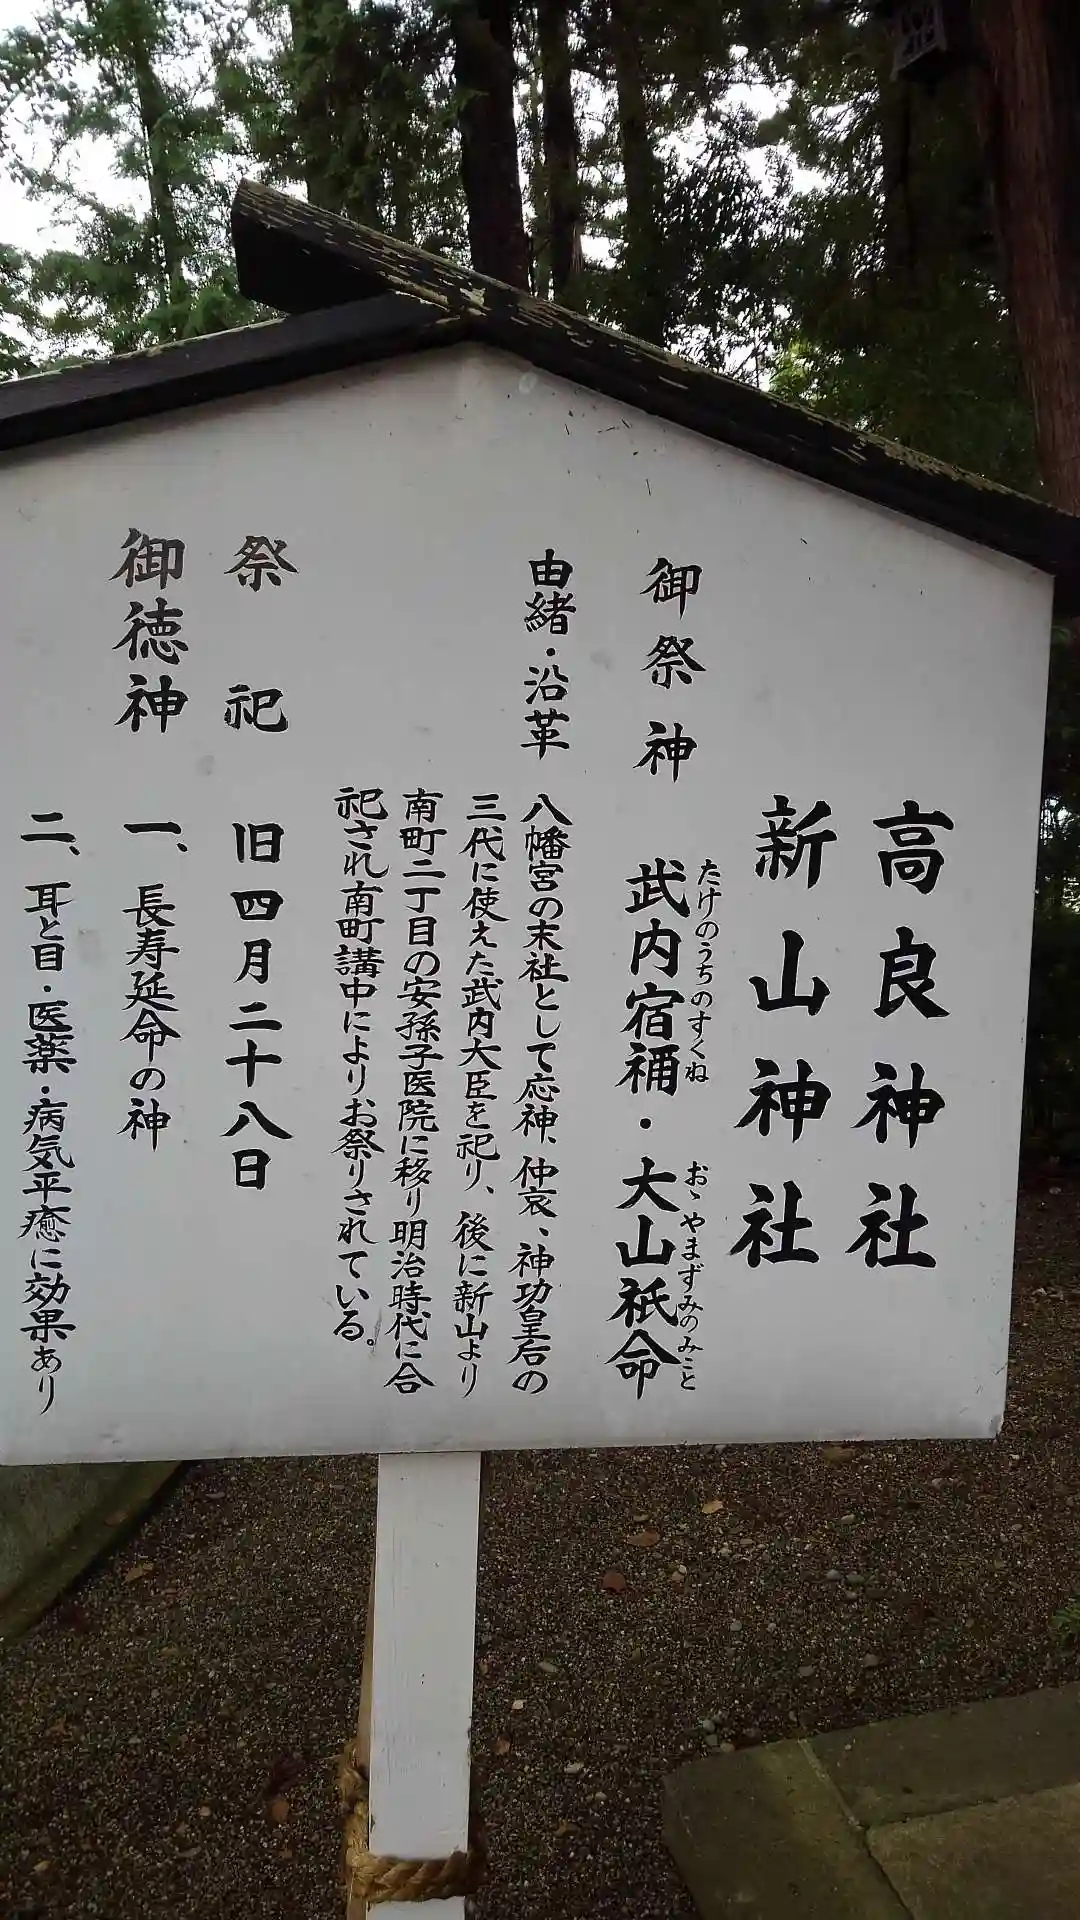 高良神社
新山神社
御祭神　武内宿禰・大山祇命
たけのうちのすくね
おゝやまずみのみこと
由緒・沿革　八幡宮の末社として応神、仲哀、神功皇后の
三代に使えた武内大臣を祀り、後に新山より
南町二丁目の安孫子医院に移り明治時代に合
祀され南町講中によりお祭りされている。
祭祀　旧四月二十八日
御徳神　一、長寿延命の神
二、耳と目・医薬・病気平癒に効果あり